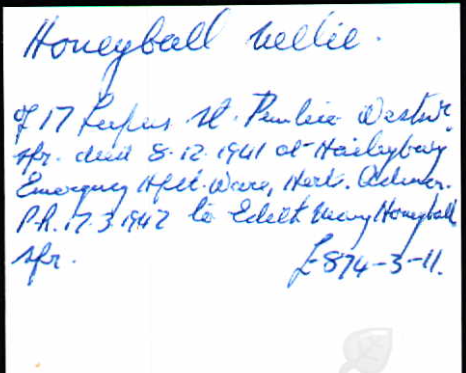 Honeyball Nellie.
of 17 Lupus St. Pimlico Westmr
spr. died 8.12.1941 at Haileybury
Emergency Hptl. Ware, Herts. Admon.
P.R. 17.3.1942 to Edith Mary Honeyball
spr.
£874-3-11.